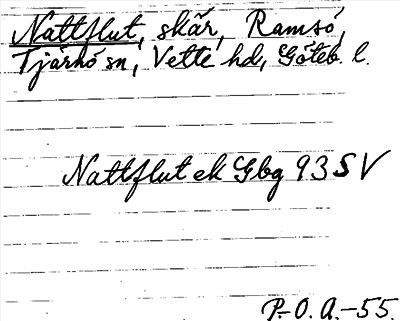 Nattflut, skär, Ramsö,
Tjärnö sn, Vette hd, Göteb. l.
Nattflut ek Gbg 93 SV
P.-O. A.-55.